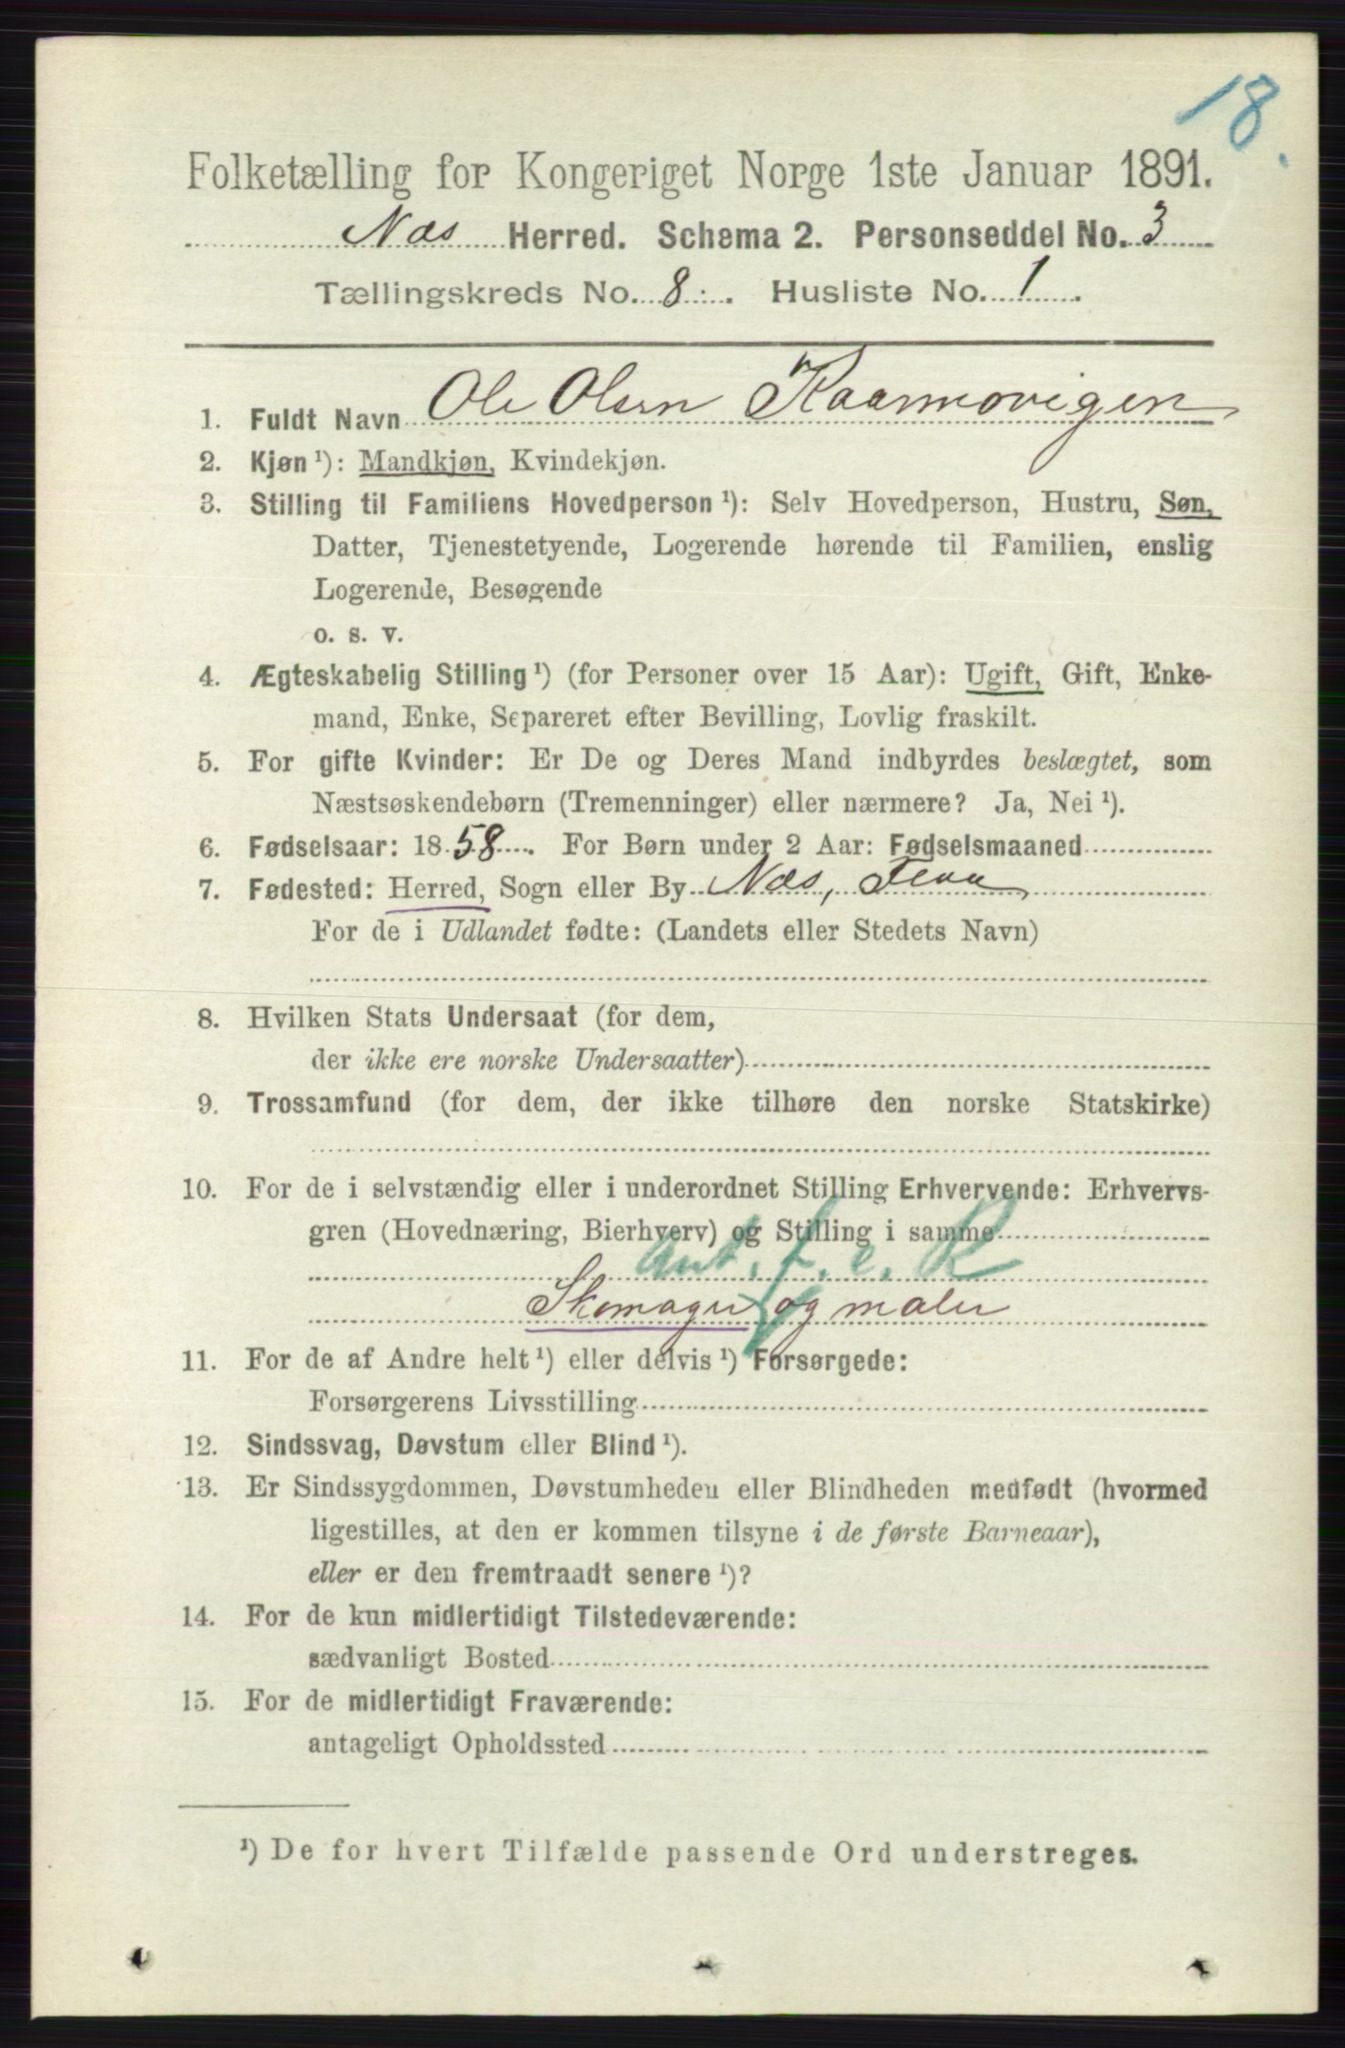 18.
Folketælling for Kongeriget Norge 1ste Januar 1891.
Næs Herred. Schema 2. Personseddel No. 3
Tællingskreds No. 8. Husliste No. 1.
1. Fuldt Navn Ole Olsen
2. Kjøn ¹): Mandkjøn, Kvindekjøn.
3. Stilling til Familiens Hovedperson ¹): Selv Hovedperson, Hustru, Søn,
Datter, Tjenestetyende, Logerende hørende til Familien, enslig
Logerende, Besøgende
o. s. v.
4. Ægteskabelig Stilling ¹) (for Personer over 15 Aar): Ugift, Gift, Enke-
mand, Enke, Separeret efter Bevilling, Lovlig fraskilt.
5. For gifte Kvinder: Er De og Deres Mand indbyrdes beslægtet, som
Næstsøskendebørn (Tremenninger) eller nærmere? Ja, Nei ¹).
6. Fødselsaar: 1858. For Børn under 2 Aar: Fødselsmaaned
7. Fødested: Herred, Sogn eller By Næs, Flaa
For de i Udlandet fødte: (Landets eller Stedets Navn)
8. Hvilken Stats Undersaat (for dem,
der ikke ere norske Undersaatter)
9. Trossamfund (for dem, der ikke tilhøre den norske Statskirke)
10. For de i selvstændig eller i underordnet Stilling Erhvervende: Erhvervs-
gren (Hovednæring, Bierhverv) og Stilling i samme
Ant. f. e. R
Skomager og maler
11. For de af Andre helt ¹) eller delvis ¹) Forsørgede:
Forsørgerens Livsstilling
12. Sindssvag, Døvstum eller Blind ¹).
13. Er Sindssygdommen, Døvstumheden eller Blindheden medfødt (hvormed
ligestilles, at den er kommen tilsyne i de første Barneaar),
eller er den fremtraadt senere ¹)?
14. For de kun midlertidigt Tilstedeværende:
sædvanligt Bosted
15. For de midlertidigt Fraværende:
antageligt Opholdssted
¹) De for hvert Tilfælde passende Ord understreges.